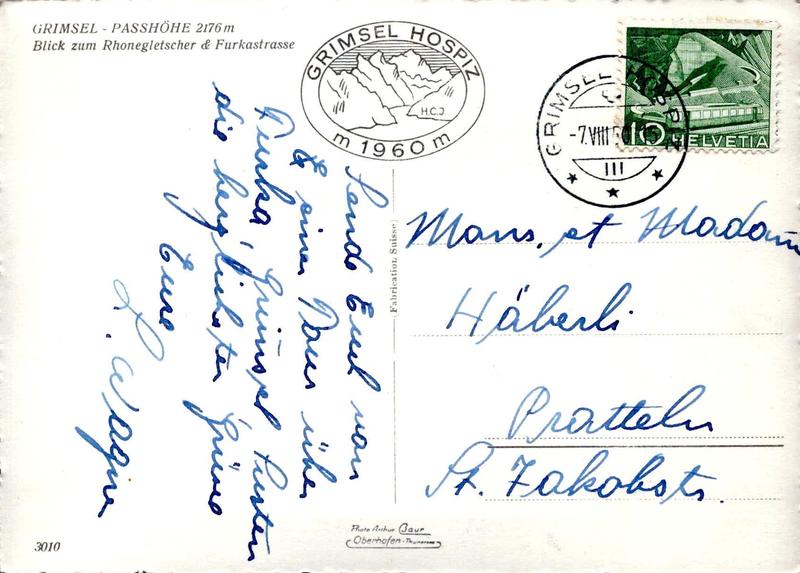 GRIMSEL - PASSHÖHE 2176 m
Blick zum Rhonegletscher & Furkastrasse
GRIMSEL HOSPIZ
H.C.J.
m 1960 m
GRIMSEL
-7.VIII
III
10 HELVETIA
Sende Euch von
einer Tour über
Furka, Grimsel, Susten
die herzlichsten Grüsse
Eure
L. Wagner
(Fabrication Suisse)
Mons. et Madame
Häberli
Pratteln
St. Jakobstr.
3010
Photo Arthur Baur
Oberhofen-Thunersee